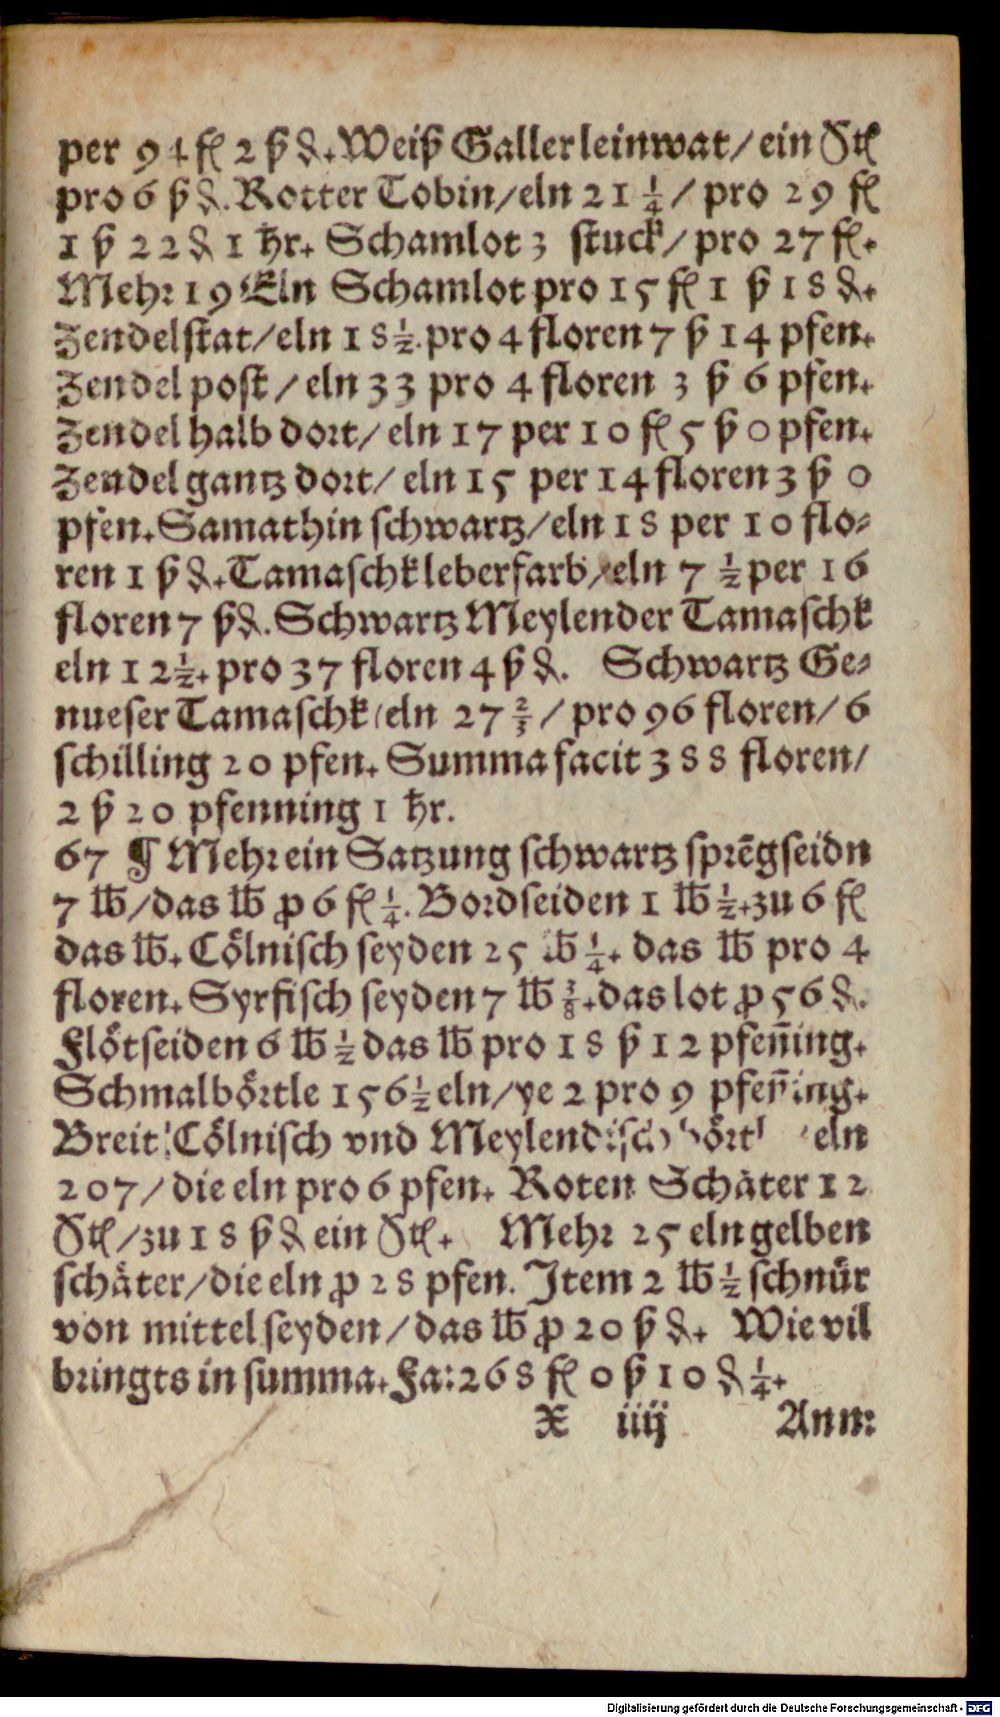 per 94 fl 2 ß ₰. Weiß Galler leinwat/ ein Stl
pro 6 ß ₰. Rotter Tobin/eln 21 1/4 / pro 29 fl
1 ß 22 ₰ 1 hr. Schamlot 3 stuck/ pro 27 fl.
Mehr 19 Eln Schamlot pro 15 fl 1 ß 18 ₰.
Zendelstat/eln 18 1/2. pro 4 floren 7 ß 14 pfen.
Zendel post / eln 33 pro 4 floren 3 ß 6 pfen.
Zendel halb dort/ eln 17 per 10 fl 5 ß 0 pfen.
Zendel gantz dort/ eln 15 per 14 floren 3 ß 0
pfen. Samathin schwartz/eln 18 per 10 flo⸗
ren 1 ß ₰. Tamaschk leberfarb/eln 7 1/2 per 16
floren 7 ß ₰. Schwartz Meylender Tamaschk
eln 12 1/2. pro 37 floren 4 ß ₰. Schwartz Ge⸗
nueser Tamaschk/eln 27 2/3 / pro 96 floren/ 6
schilling 20 pfen. Summa facit 388 floren/
2 ß 20 pfenning 1 hr.
67 ¶ Mehr ein Satzung schwartz sprēgseidn
7 ℔/das ℔ ꝓ 6 fl 1/4. Bordseiden 1 ℔ 1/2. zu 6 fl
das ℔. Cölnisch seyden 25 ℔ 1/4. das ℔ pro 4
floren. Syrfisch seyden 7 ℔ 3/8. das lot ꝓ 56 ₰.
Flötseiden 6 ℔ 1/2 das ℔ pro 18 ß 12 pfen̄ing.
Schmalbörtle 156 1/2 eln/ye 2 pro 9 pfen̄ing.
Breit Cölnisch vnd Meylendisch eln
207/ die eln pro 6 pfen. Roten Schäter 12
Stl/zu 18 ß ₰ ein Stl. Mehr 25 eln gelben
schäter/die eln ꝓ 28 pfen. Item 2 ℔ 1/2 schnür
von mittel seyden/das ℔ ꝓ 20 ß ₰. Wie vil
bringts in summa. Fa: 268 fl 0 ß 10 ₰ 1/4.
X iiij Ann:
Digitalisierung gefördert durch die Deutsche Forschungsgemeinschaft - DFG